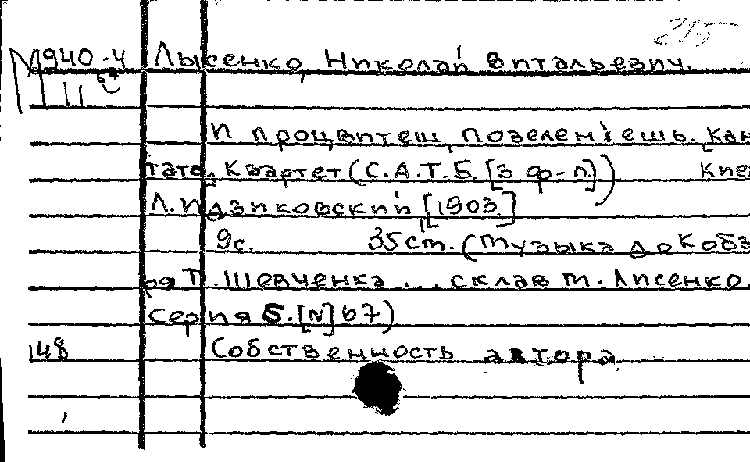 215
М940-4 Лысенко, Николай Витальевич.
III
И процвітеш, позеленієшь. Кан
тата, Квартет (С.А.Т.Б. [з ф-п.]) Кие
Л. Идзиковский [1903.]
9с. 35 cm. (Музыка до Кобз
ря Т. Шевченка ... склав М. Лисенко.
Серия 5. [N] 67)
148 Собственность автора